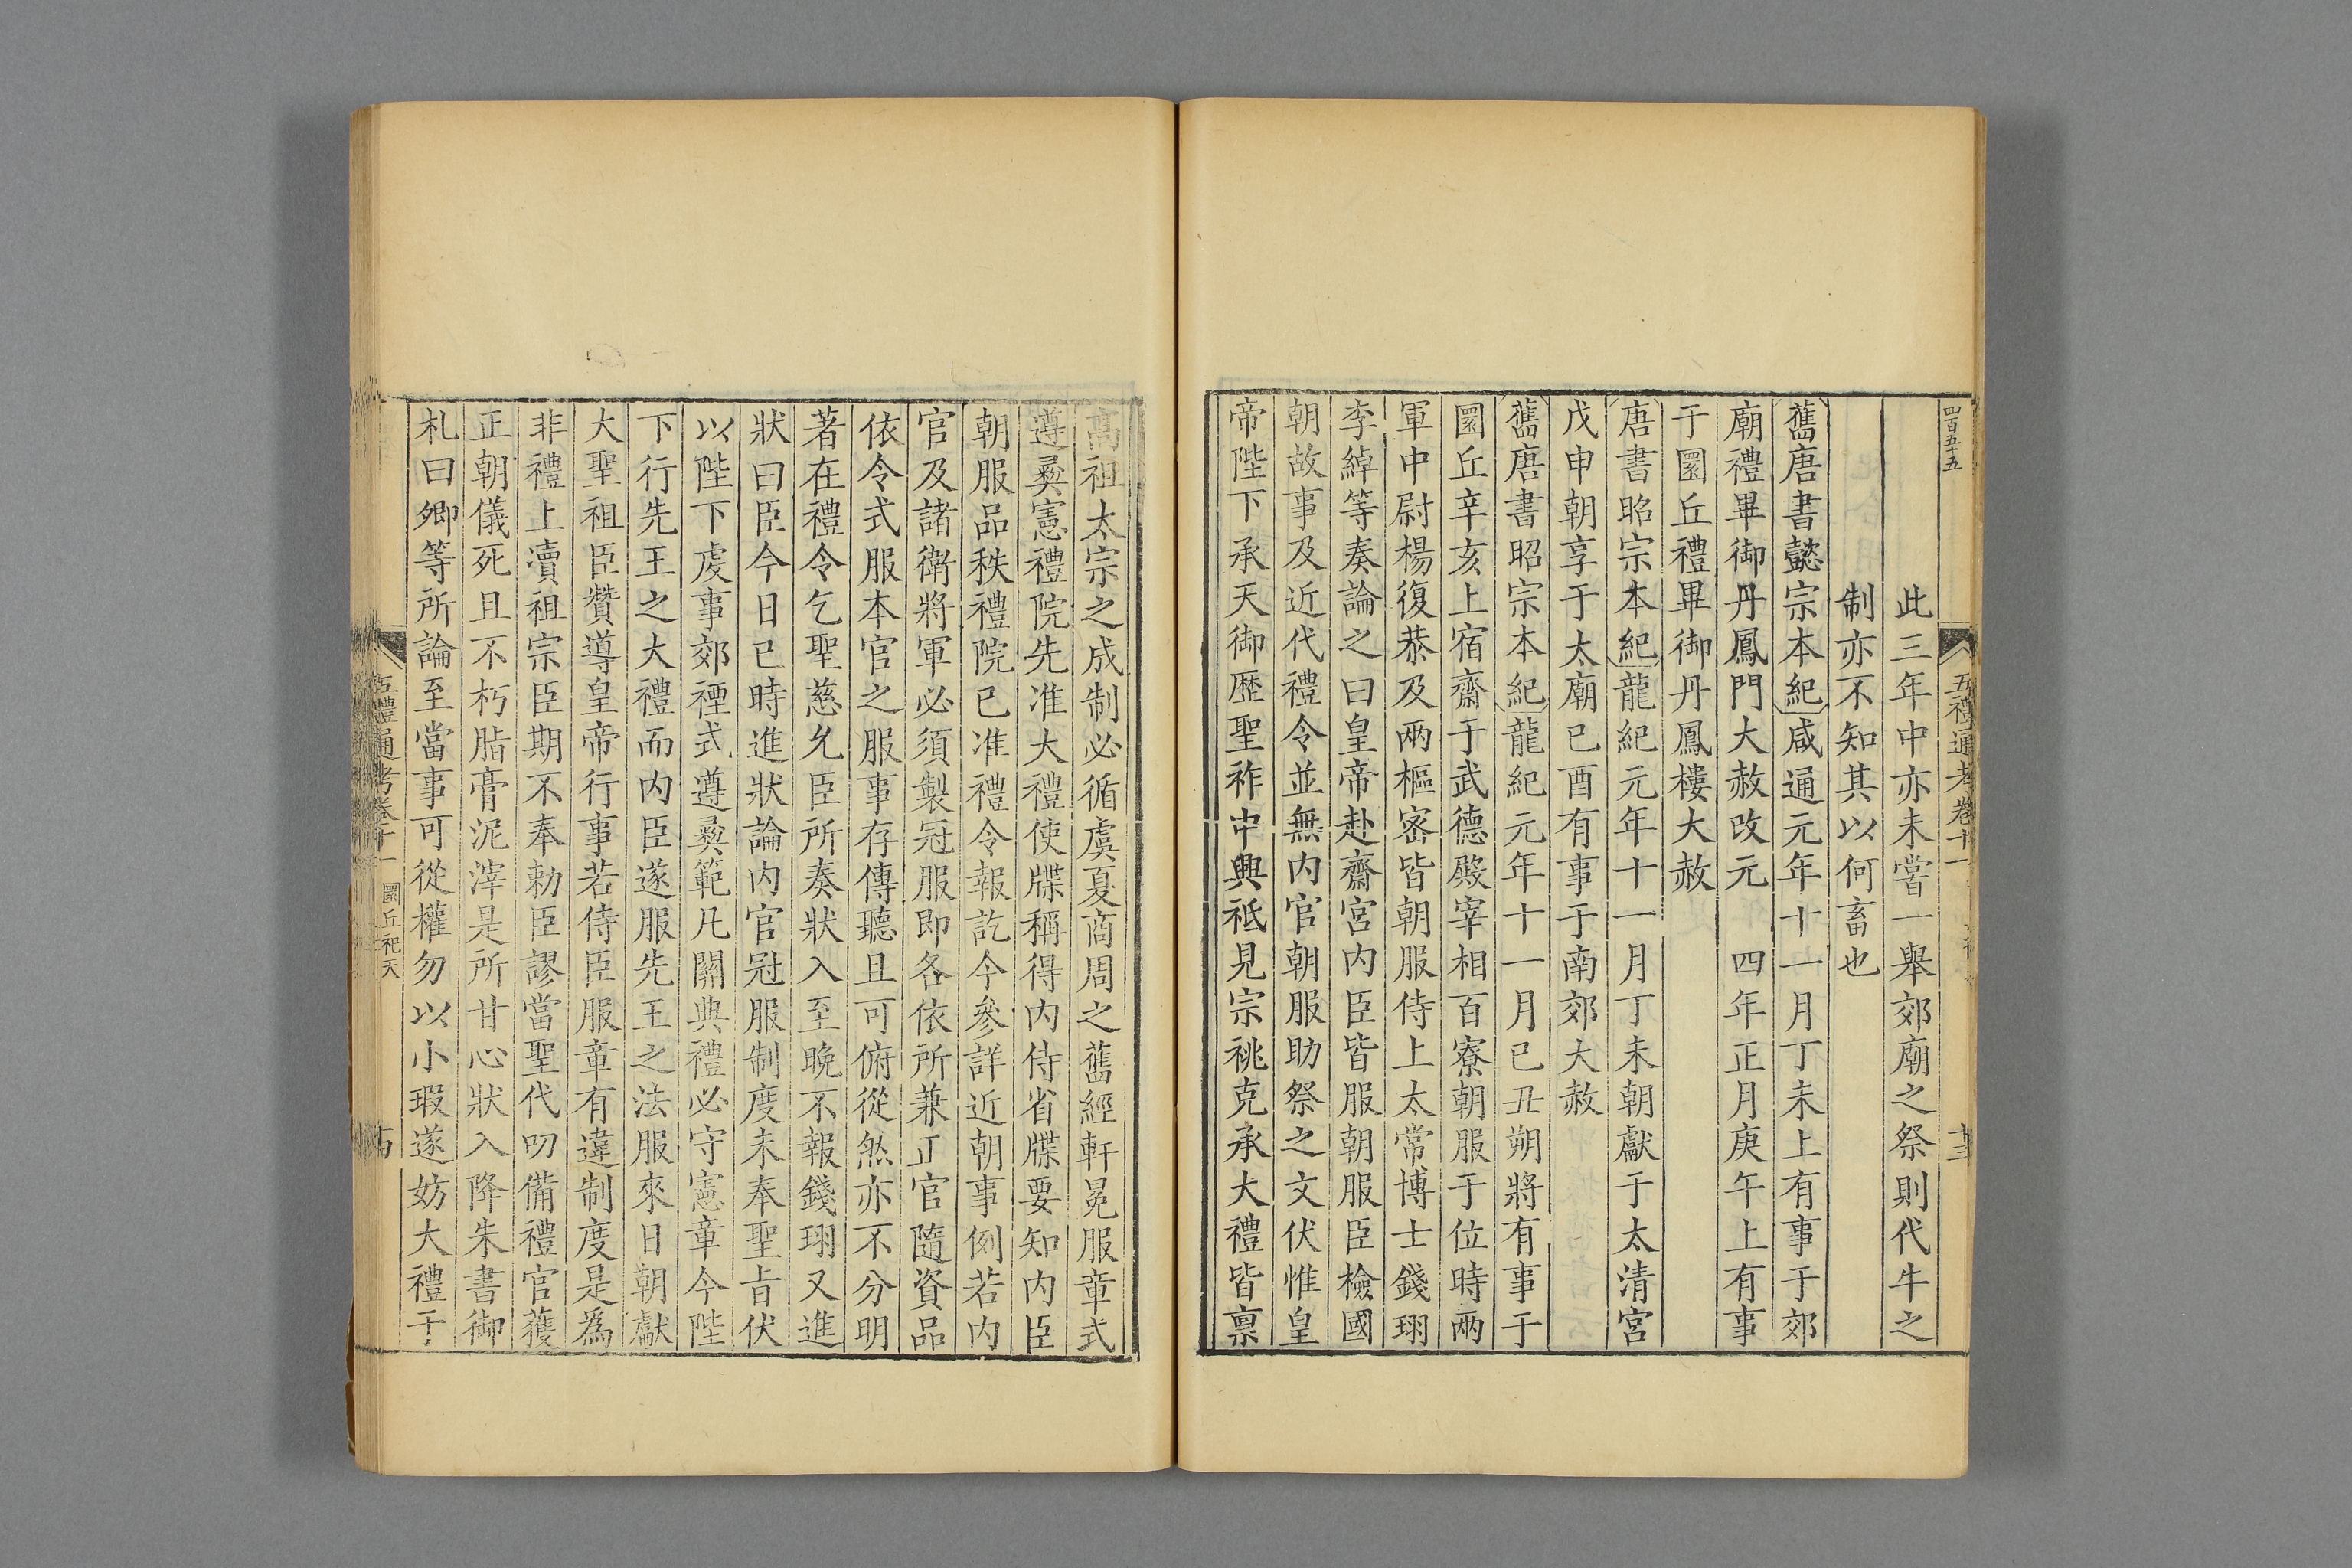 四百五十五
五禮通考卷十一
十三
此三年中亦未嘗一舉郊廟之祭則代牛之
制亦不知其以何畜也
舊唐書懿宗本紀咸通元年十一月丁未上有事于郊
廟禮畢御丹鳳門大赦改元 四年正月庚午上有事
于圜丘禮畢御丹鳳樓大赦
唐書昭宗本紀龍紀元年十一月丁未朝獻于太清宮
戊申朝享于太廟已酉有事于南郊大赦
舊唐書昭宗本紀龍紀元年十一月己丑朔將有事于
圜丘辛亥上宿齋于武德殿宰相百寮朝服于位時兩
軍中尉楊復恭及兩樞密皆朝服侍上太常博士錢珝
李綽等奏論之曰皇帝赴齋宮内臣皆服朝服臣檢國
朝故事及近代禮令並無内官朝服助祭之文伏惟皇
帝陛下承天御歷聖祚中興祗見宗祧克承大禮皆禀
高祖太宗之成制必循虞夏商周之舊經軒冕服章式
遵彝憲禮院先准大禮使牒稱得内侍省牒要知内臣
朝服品秩禮院已准禮令報訖今參詳近朝事例若内
官及諸衛將軍必須製冠服即各依所兼正官隨資品
依令式服本官之服事存傳聽且可俯從然亦不分明
著在禮令乞聖慈允臣所奏狀入至晚不報錢珝又進
狀曰臣今日已時進狀論内官冠服制度未奉聖旨伏
以陛下虔事郊禋式遵彝範凡關典禮必守憲章今陛
下行先王之大禮而内臣遂服先王之法服來日朝獻
大聖祖臣贊導皇帝行事若侍臣服章有違制度是爲
非禮上瀆祖宗臣期不奉勅臣謬當聖代叨備禮官獲
正朝儀死且不朽脂膏泥滓是所甘心狀入降朱書御
札曰卿等所論至當事可從權勿以小瑕遂妨大禮于
五禮通考卷十一 圜丘祀天